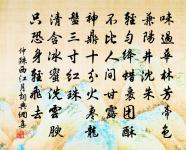 味過華林芳蒂色
兼陽井沈朱
輕勻絳蠟裹團酥
不比人間甘露
神鼎十分火棗龍
盤三寸紅珠
清含冰蜜洗雲腴
只恐身輕飛去
仲殊西江月詞典網